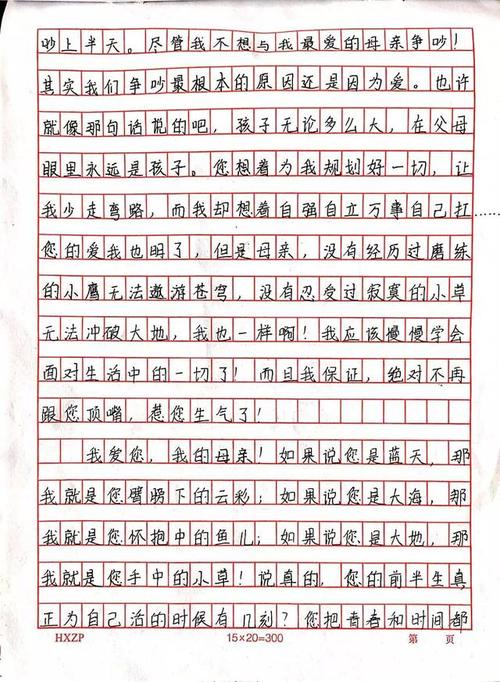 吵上半天。尽管我不想与我最爱的母亲争吵！
其实我们争吵最根本的原因还是因为爱。也许
就像那句话说的吧，孩子无论多么大，在父母
眼里永远是孩子。您想着为我规划好一切，让
我少走弯路，而我却想着自强自立万事自己扛
您的爱我也明了，但是母亲，没有经历过磨练
的小鹰无法遨游苍穹，没有忍受过寂寞的小草
无法冲破大地，我也一样啊！我应该慢慢学会
面对生活中的一切了！而且我保证，绝对不再
跟您顶嘴，惹您生气了！
我爱您，我的母亲！如果说您是蓝天，那
我就是您臂膀下的云彩；如果说您是大海，那
我就是您怀抱中的鱼儿；如果说您是大地，那
我就是您手中的小草！说真的，您的前半生真
正为自己活的时候有几刻？您把青春和时间都
HXZP 15×20=300 第 页